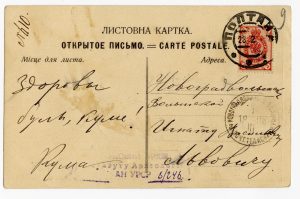 ЛИСТОВНА КАРТКА.
ОТКРЫТОЕ ПИСЬМО. — CARTE POSTALE
Місце для листа.
Адреса.
ПОЛТАВА
9
Здоровы
булы, Кумe!
Кума
Новоградволынск
Волынской
Игнату
Львовичу
АН УРСР 6/246